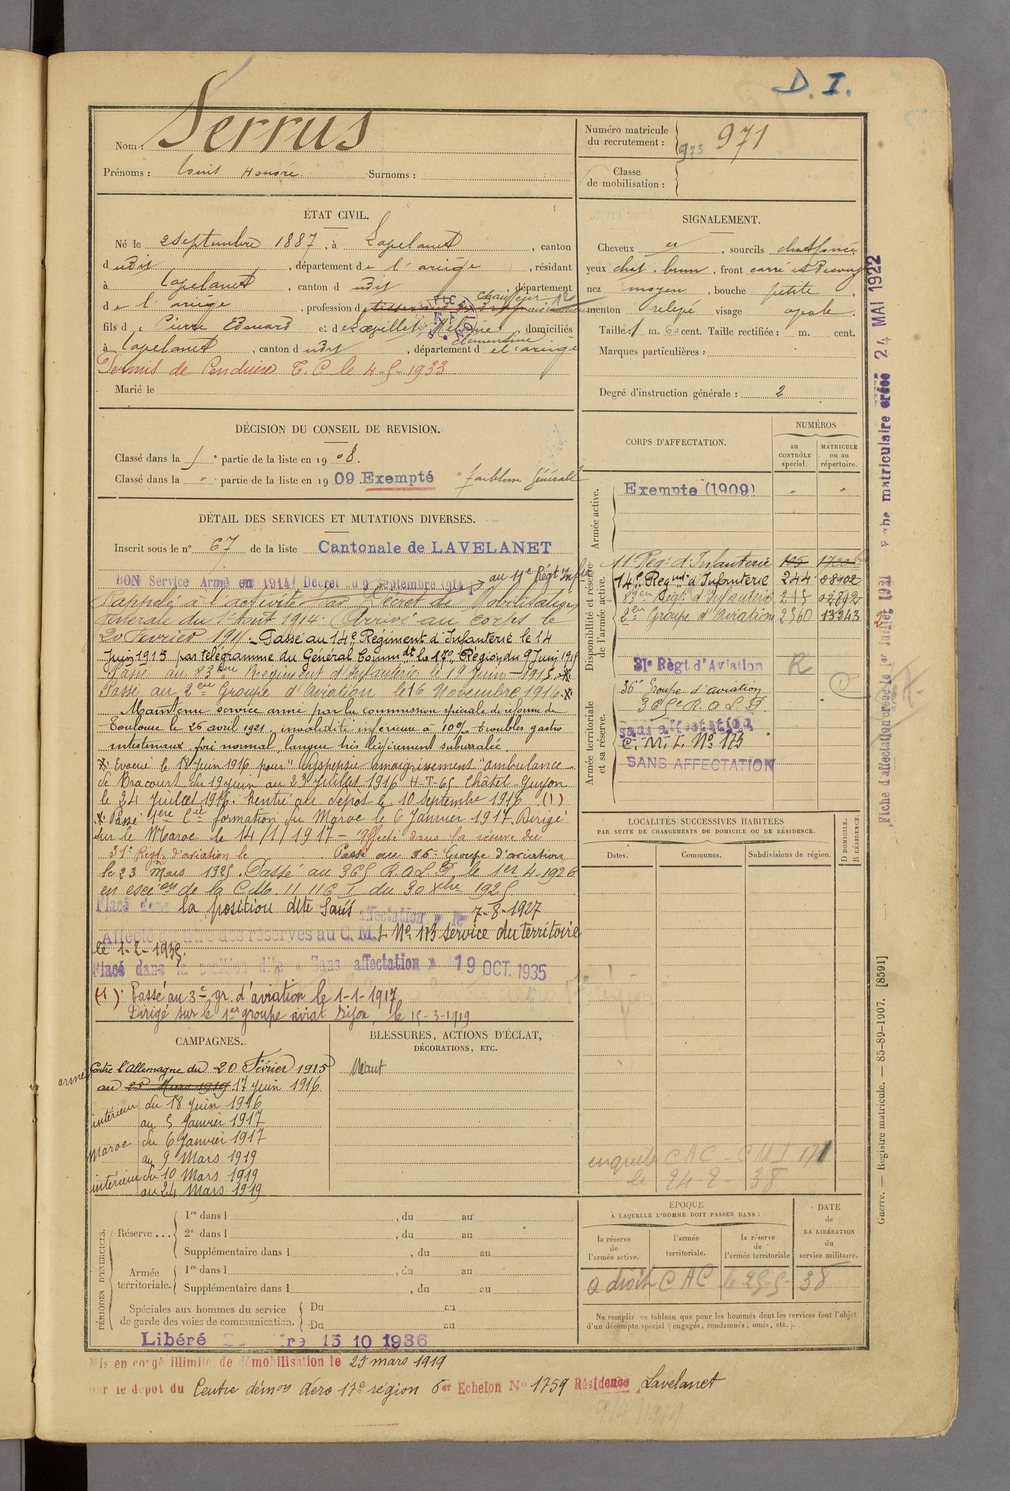 D. I.
Nom : Serrus
Prénoms : Louis Honoré Surnoms :
Numéro matricule
du recrutement : 973 971
Classe
de mobilisation :
ÉTAT CIVIL.
Né le 2 septembre 1887, à Lavelanet, canton
dudit, département de l'ariège, résidant
à Lavelanet, canton dudit, département
de l'ariège, profession de chauffeur
fils de Pierre Edouard et de, domiciliés
à Lavelanet, canton dudit, département de l'ariège
Permis de Conduire T. C. le 4-5-1933
Marié le
SIGNALEMENT.
Cheveux, sourcils chat foncé
yeux chat. brun, front carré
nez moyen, bouche petite,
menton relevé visage ovale.
Taille : 1 m. 60 cent. Taille rectifiée : m. cent.
Marques particulières :
Degré d'instruction générale : 2
DÉCISION DU CONSEIL DE REVISION.
Classé dans la 5e partie de la liste en 1908.
Classé dans la " partie de la liste en 1909 Exempté faiblesse Générale
DÉTAIL DES SERVICES ET MUTATIONS DIVERSES.
Inscrit sous le n° 67 de la liste Cantonale de LAVELANET
BON Service Armé en 1914 (Décret du 9 septembre 1914) au 11e Régt Infie
Rappelé à l'activité par Décret de Mobilisation
Générale du 1er Août 1914. Arrivé au corps le
20 février 1915. Passé au 14e Régiment d'Infanterie le 14
Juin 1915 par télégramme du Général Commdt la 17e Région du 9 Juin 1915
Passé au 83eme Régiment d'Infanterie le 19 Juin 1915
Passé au 2eme Groupe d'Aviation le 16 Novembre 1916.
Maintenu service armé par la commission spéciale de réforme de
Toulouse le 26 avril 1921 invalidité inférieure à 10% troubles gastro
intestinaux, foie normal, langue très légèrement saburrale.
Evacué le 18 juin 1916 pour "dyspepsie amaigrissement" ambulance
de Bracourt du 19 juin au 23 juillet 1916 H-T-65 Châtel-Guyon
le 24 Juillet 1916. Rentré au dépôt le 10 septembre 1916 (1)
Passé formation du Maroc le 6 Janvier 1917. Dirigé
sur le Maroc le 14/1/1917 - Affecté dans la réserve du
31e Régt. d'aviation le Passé au 36e Groupe d'aviation
le 23 Mars 1925. Passé au 365 R.A.L.P. le 1er 4-1926
en exéon de la C.M. 11 116 I du 30 Xbre 1925
Placé dans la position dite Sans affectation le 7-8-1927
Affecté des réserves au C.M.I. N° 173 service du territoire
le 1-2-1935.
Placé dans la position dite « Sans affectation » 19 OCT. 1935
(1) Passé au 3e gr. d'aviation le 1-1-1917
Dirigé sur le 1er groupe aviat Dijon, le 15-3-1919
CORPS D'AFFECTATION.
NUMÉROS
au
CONTRÔLE
spécial.
MATRICULE
ou au
répertoire.
Armée active.
Exempté (1909) " "
Disponibilité et réserve
de l'armée active.
11 Régt d'Infanterie 195
14e Regmt d'Infanterie 244 08402
83eme Régt d'Infanterie 215 02892
2eme Groupe d'Aviation 2560 13343
31e Règt d'Aviation R
Armée territoriale
et sa réserve.
36e Groupe d'aviation
365e R.A.L.P.
sans affectation
C.M.I. N° 173
SANS AFFECTATION
LOCALITÉS SUCCESSIVES HABITÉES
PAR SUITE DE CHANGEMENTS DE DOMICILE OU DE RÉSIDENCE.
Dates. Communes. Subdivisions de région. D DOMICILE. R RÉSIDENCE.
CAMPAGNES.
Contre l'Allemagne du 20 Février 1915
armées au 25 Mars 1919 17 Juin 1916
intérieur du 18 Juin 1916
au 5 Janvier 1917
Maroc du 6 Janvier 1917
au 9 Mars 1919
intérieur du 10 Mars 1919
au 24 Mars 1919
BLESSURES, ACTIONS D'ÉCLAT,
DÉCORATIONS, ETC.
Néant
enquête CAC - CMI 171
le 24-2-38
PÉRIODES D'EXERCICES.
Réserve ... 1re dans l , du au
2e dans l , du au
Supplémentaire dans l , du au
Armée
territoriale. 1re dans l , du au
Supplémentaire dans l , du au
Spéciales aux hommes du service
de garde des voies de communication. Du au
Du au
Libéré 15 10 1936
EPOQUE
À LAQUELLE L'HOMME DOIT PASSER DANS :
la réserve
de
l'armée active.
l'armée
territoriale.
la réserve
de
l'armée territoriale
DATE
de
LA LIBÉRATION
du
service militaire.
a droit CAC le 25-5-38
Ne remplir ce tableau que pour les hommes dont les services font l'objet
d'un décompte spécial (engagés, condamnés, omis, etc.).
Mis en congé illimité de démobilisation le 25 mars 1919
par le dépôt du Centre démon Aéro 17e région 6er Echelon N° 1759 Résidence Lavelanet
Fiche d'affectation créée le 1er Juillet 1931
Fiche matriculaire créée 24 MAI 1922
Guerre. — Registre matricule. — 85-89-1907. [8591]